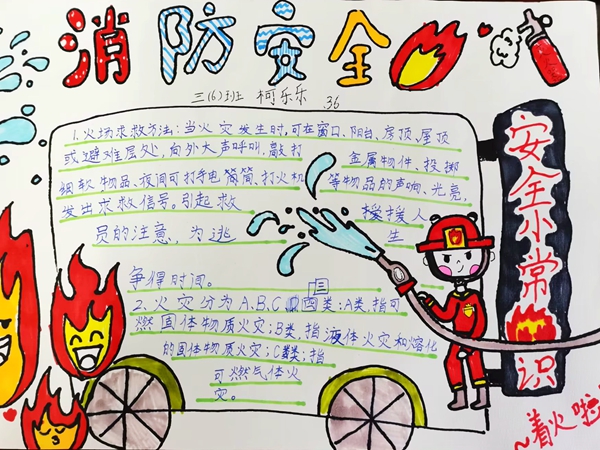 消防安全
三(6)班 柯乐乐 36
1.火场求救方法:当火灾发生时,可在窗口、阳台、房顶、屋顶
或避难层处,向外大声呼叫,敲打 金属物件、投掷
细软物品、夜间可打手电筒筒、打火机 等物品的声响、光亮,
发出求救信号。引起救 援援人
员的注意,为逃 生
争得时间。
2.火灾分为A,B,C 三类:A类,指可
燃固体物质火灾;B类,指液体火灾和熔化
的固体物质火灾;C类,指
可燃气体火
灾。
安全小常识
~着火啦